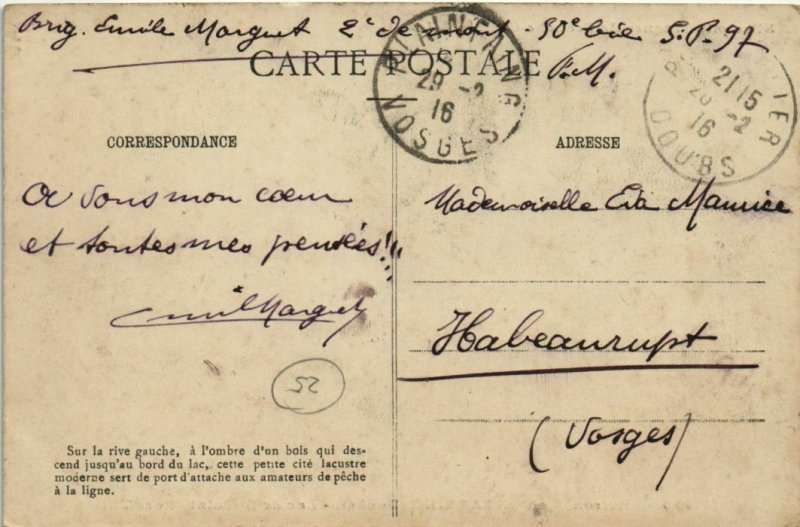 Brig. Emile Marguet 2e de mont - 50e bie S.P. 97
CARTE POSTALE
F.M.
PLAINFAING
29 -2
16
VOSGES
2115
28 -2
16
DOUBS
CORRESPONDANCE
ADRESSE
A vous mon cœur
et toutes mes pensées!!!
Emile Marguet
Mademoiselle Eva Maurice
Habeaurupt
(Vosges)
52
Sur la rive gauche, à l'ombre d'un bois qui des-
cend jusqu'au bord du lac, cette petite cité lacustre
moderne sert de port d'attache aux amateurs de pêche
à la ligne.